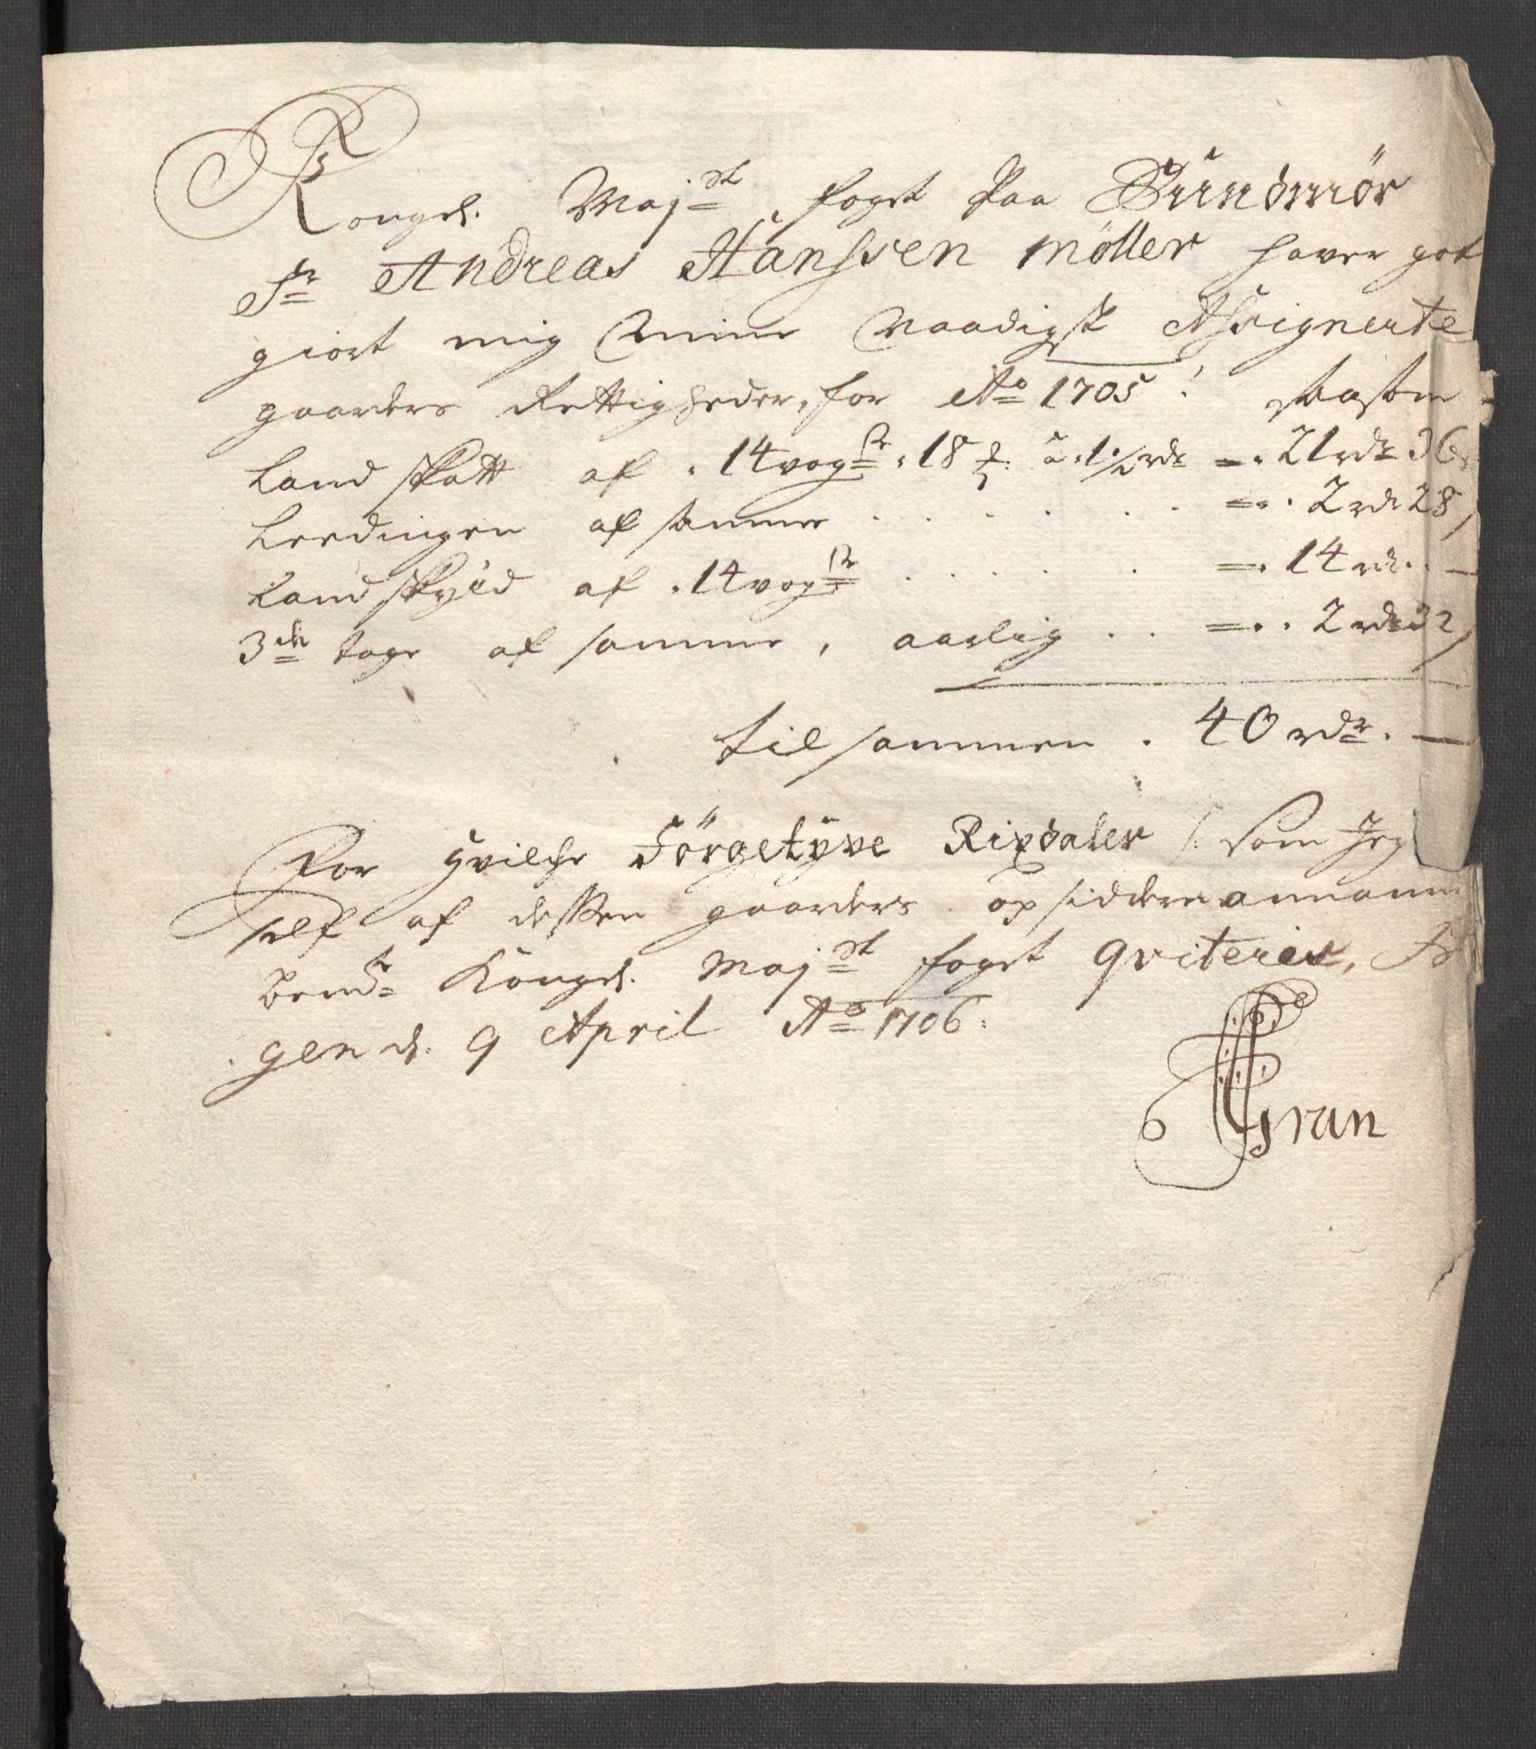 Kongel. Maj^st foget Paa Sundmør
Sr Andreas Hanssen Møller haver got
giort mig mine Naadigst Assignerte
gaarders Rettigheder, for Ao 1705
Landskatt af 14 vogr 18 à 1 1/2 rdr = 21 rdr 36
Leedingen af samme . . . . . . = 2 rdr 28
Landskyld af 14 vogr . . . . . = 14 rdr. —
3de tage af samme, aarlig . . = 2 rdr 32
tilsammen . 40 rdr. —
For hvilche Förgetyve Rixdaler som Jeg
self af dessen gaarders opsiddere annam
bemte Kongel. Maj^st foget qviterer,
gen d. 9 April Ao 1706.
Gran